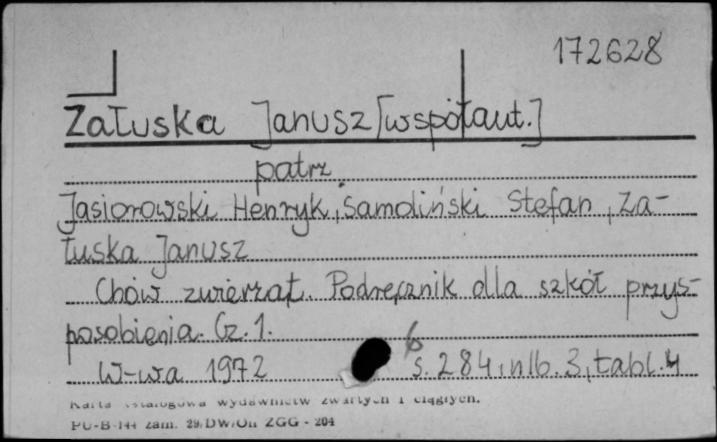 172628
Załuska Janusz [współaut.]
patrz
Jasiorowski Henryk, Samoliński Stefan, Za-
łuska Janusz
Chów zwierząt. Podręcznik dla szkół przys-
posobienia. Cz. 1.
W-wa 1972 8° s. 284, nlb. 3, tabl. 4
Karta katalogowa wydawnictw zwartych i ciągłych.
PU-B-144 zam. 29/DW/On ZGG - 204